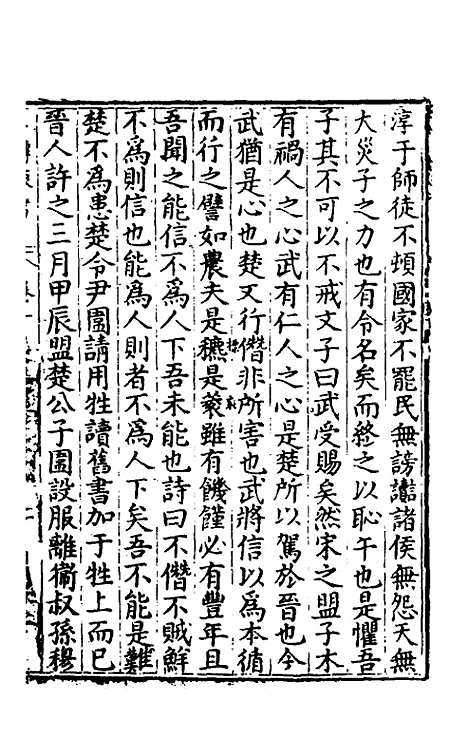 淳于師徒不頓國家不罷民無謗讟諸侯無怨天無
大災子之力也有令名矣而終之以恥午也是懼吾
子其不可以不戒文子曰武受賜矣然宋之盟子木
有禍人之心武有仁人之心是楚所以駕於晉也今
武猶是心也楚又行僭非所害也武將信以為本循
而行之譬如農夫是穮是蔉雖有饑饉必有豐年且
吾聞之能信不為人下吾未能也詩曰不僭不賊鮮
不為則信也能為人則者不為人下矣吾不能是難
楚不為患楚令尹圍請用牲讀舊書加于牲上而已
晉人許之三月甲辰盟楚公子圍設服離衞叔孫穆